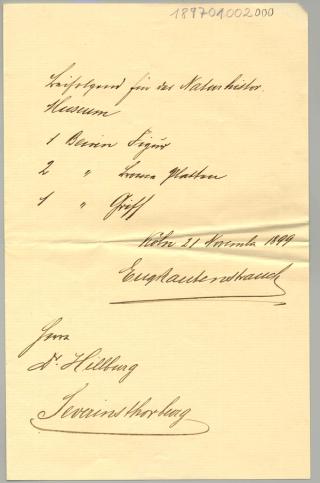 189701002000
Beifolgend für das Naturhistor.
Museum
1 Benin Figur
2 " Platten
1 " Griff
Köln 21 November 1899
Eug Rautenstrauch
Herrn
Dr Hilburg
Severinsthorburg